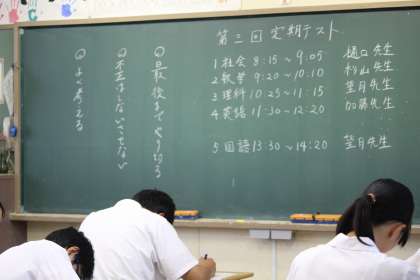 第三回 定期テスト
1 社会 8:15 ~ 9:05 樋口先生
2 数学 9:20 ~ 10:10 杉山先生
3 理科 10:25 ~ 11:15 望月先生
4 英語 11:30 ~ 12:20 加藤先生
5 国語 13:30 ~ 14:20 望月先生
最後までやりきる
不正はしないさせない
よく考える